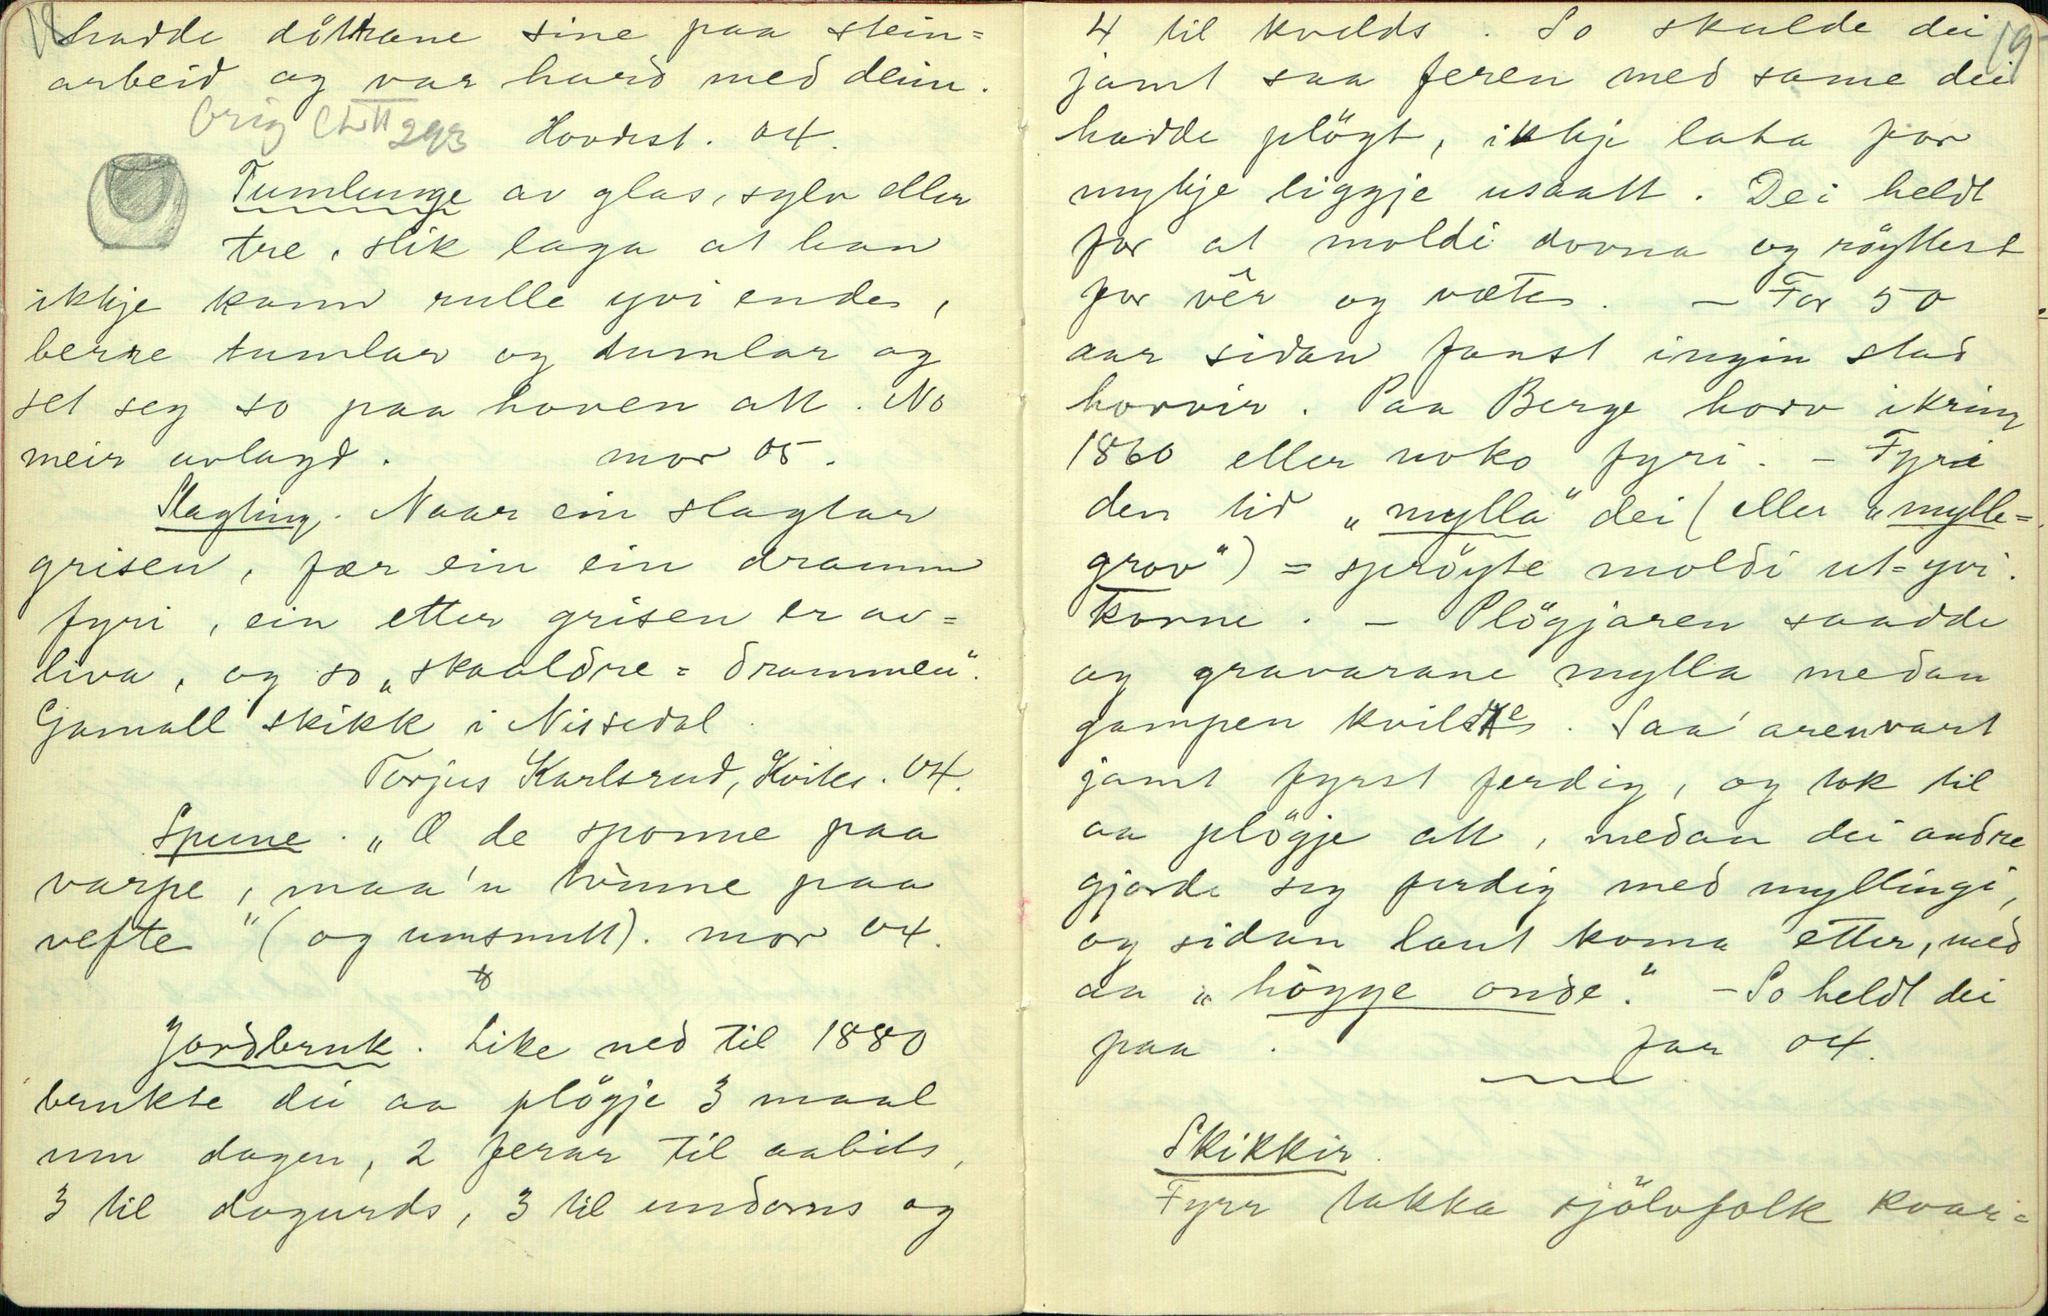 18
hadde döttrane sine paa stein=
arbeid og var hard med deim.
Orig
293
Hovdest. 04.
Tumlunge av glas, sylv eller
tre, slik laga at han
ikkje kann rulle yvi ende,
berre tumlar og tumlar og
set seg so paa hoven att. No
meir avlagd. mor 05.
Slagting. Naar ein slagtar
grisen, fær ein ein dramm
fyri, ein etter grisen er av=
liva, og so „skaaldre=drammen".
Gamall skikk i Nissedal.
Torjus Karlsrud, Kvites. 04.
Spune. „Æ de sponne paa
varpe, maa'n vinne paa
vefte" (og umsnutt). mor 04.
Jordbruk. Like ned til 1880
brukte dei aa plögje 3 maal
um dagen, 2 ferar til aabits,
3 til dagurds, 3 til undorns og
19
4 til kvelds. So skulde dei
jamt saa feren med same dei
hadde plögt, ikkje lata for
mykje liggje usaatt. Dei heldt
for at moldi dovna og röyttest
for vêr og væte. – For 50
aar sidan fanst ingin stad
horvir. Paa Berge horv ikring
1860 eller noko fyri. – Fyri
den tid „mylla" dei (eller „mylle=
grov") = spröyte moldi ut-yvi
korne. – Plögjaren saadde
og gravarane mylla medan
gampen kvilde. Saa'aren vart
jamt fyrst ferdig, og tok til
aa plögje att, medan dei andre
gjorde seg ferdig med myllingi,
og sidan laut koma etter, med
aa „högge onde". – So heldt dei
paa. far 04.
Skikkir.
Fyrr takka sjölvfolk kvar=